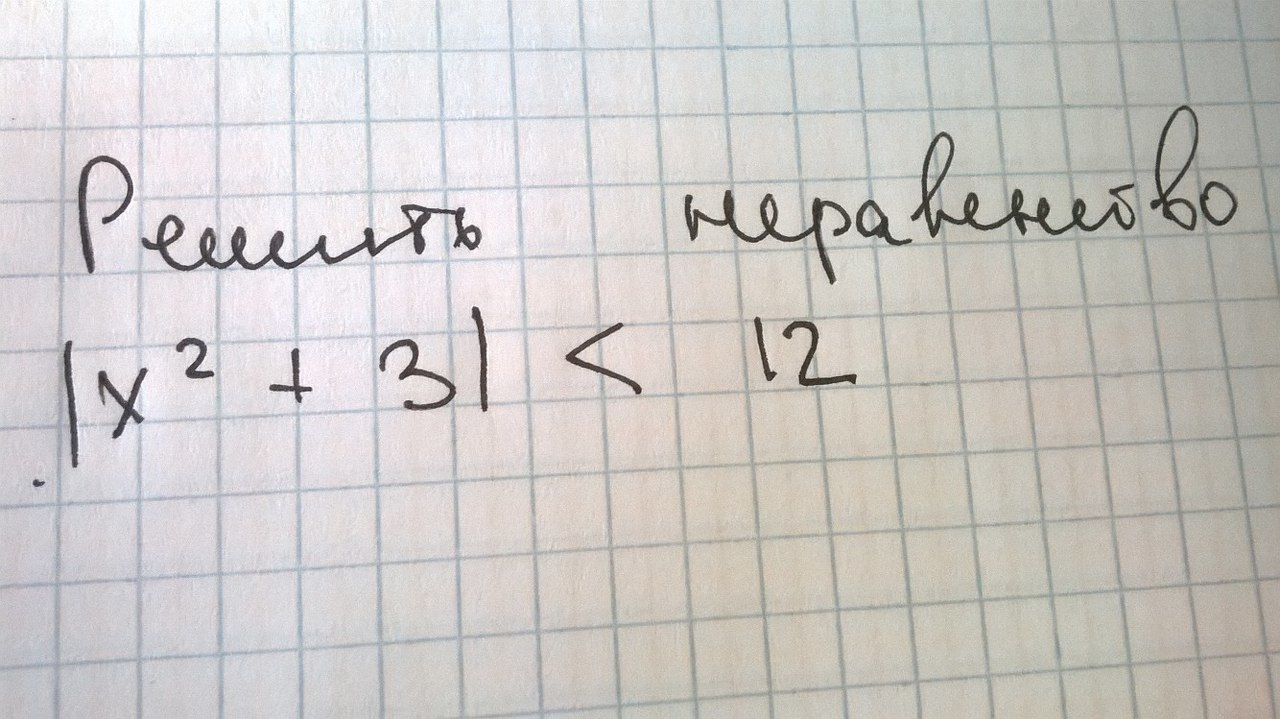 Решить неравенство
|x² + 3| < 12